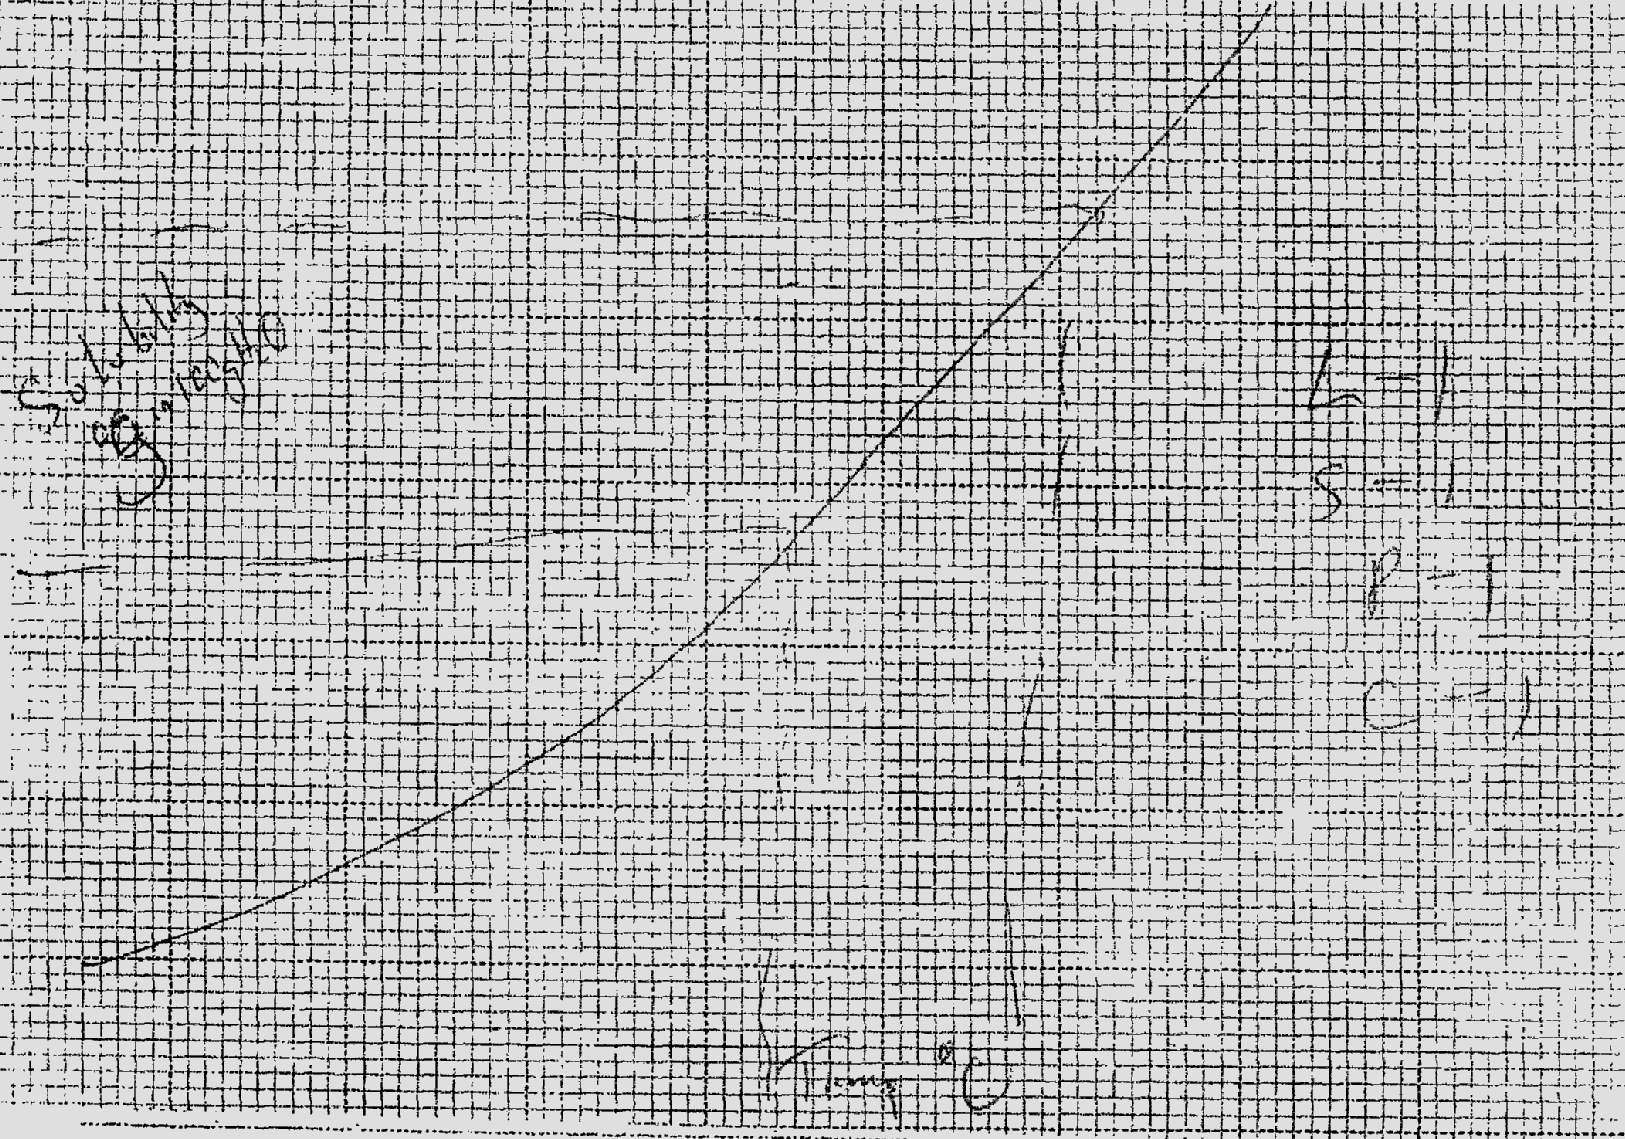 Solubility
g in 100g H2O
L - 1
S - 1
P - 1
C - 1
Temp °C